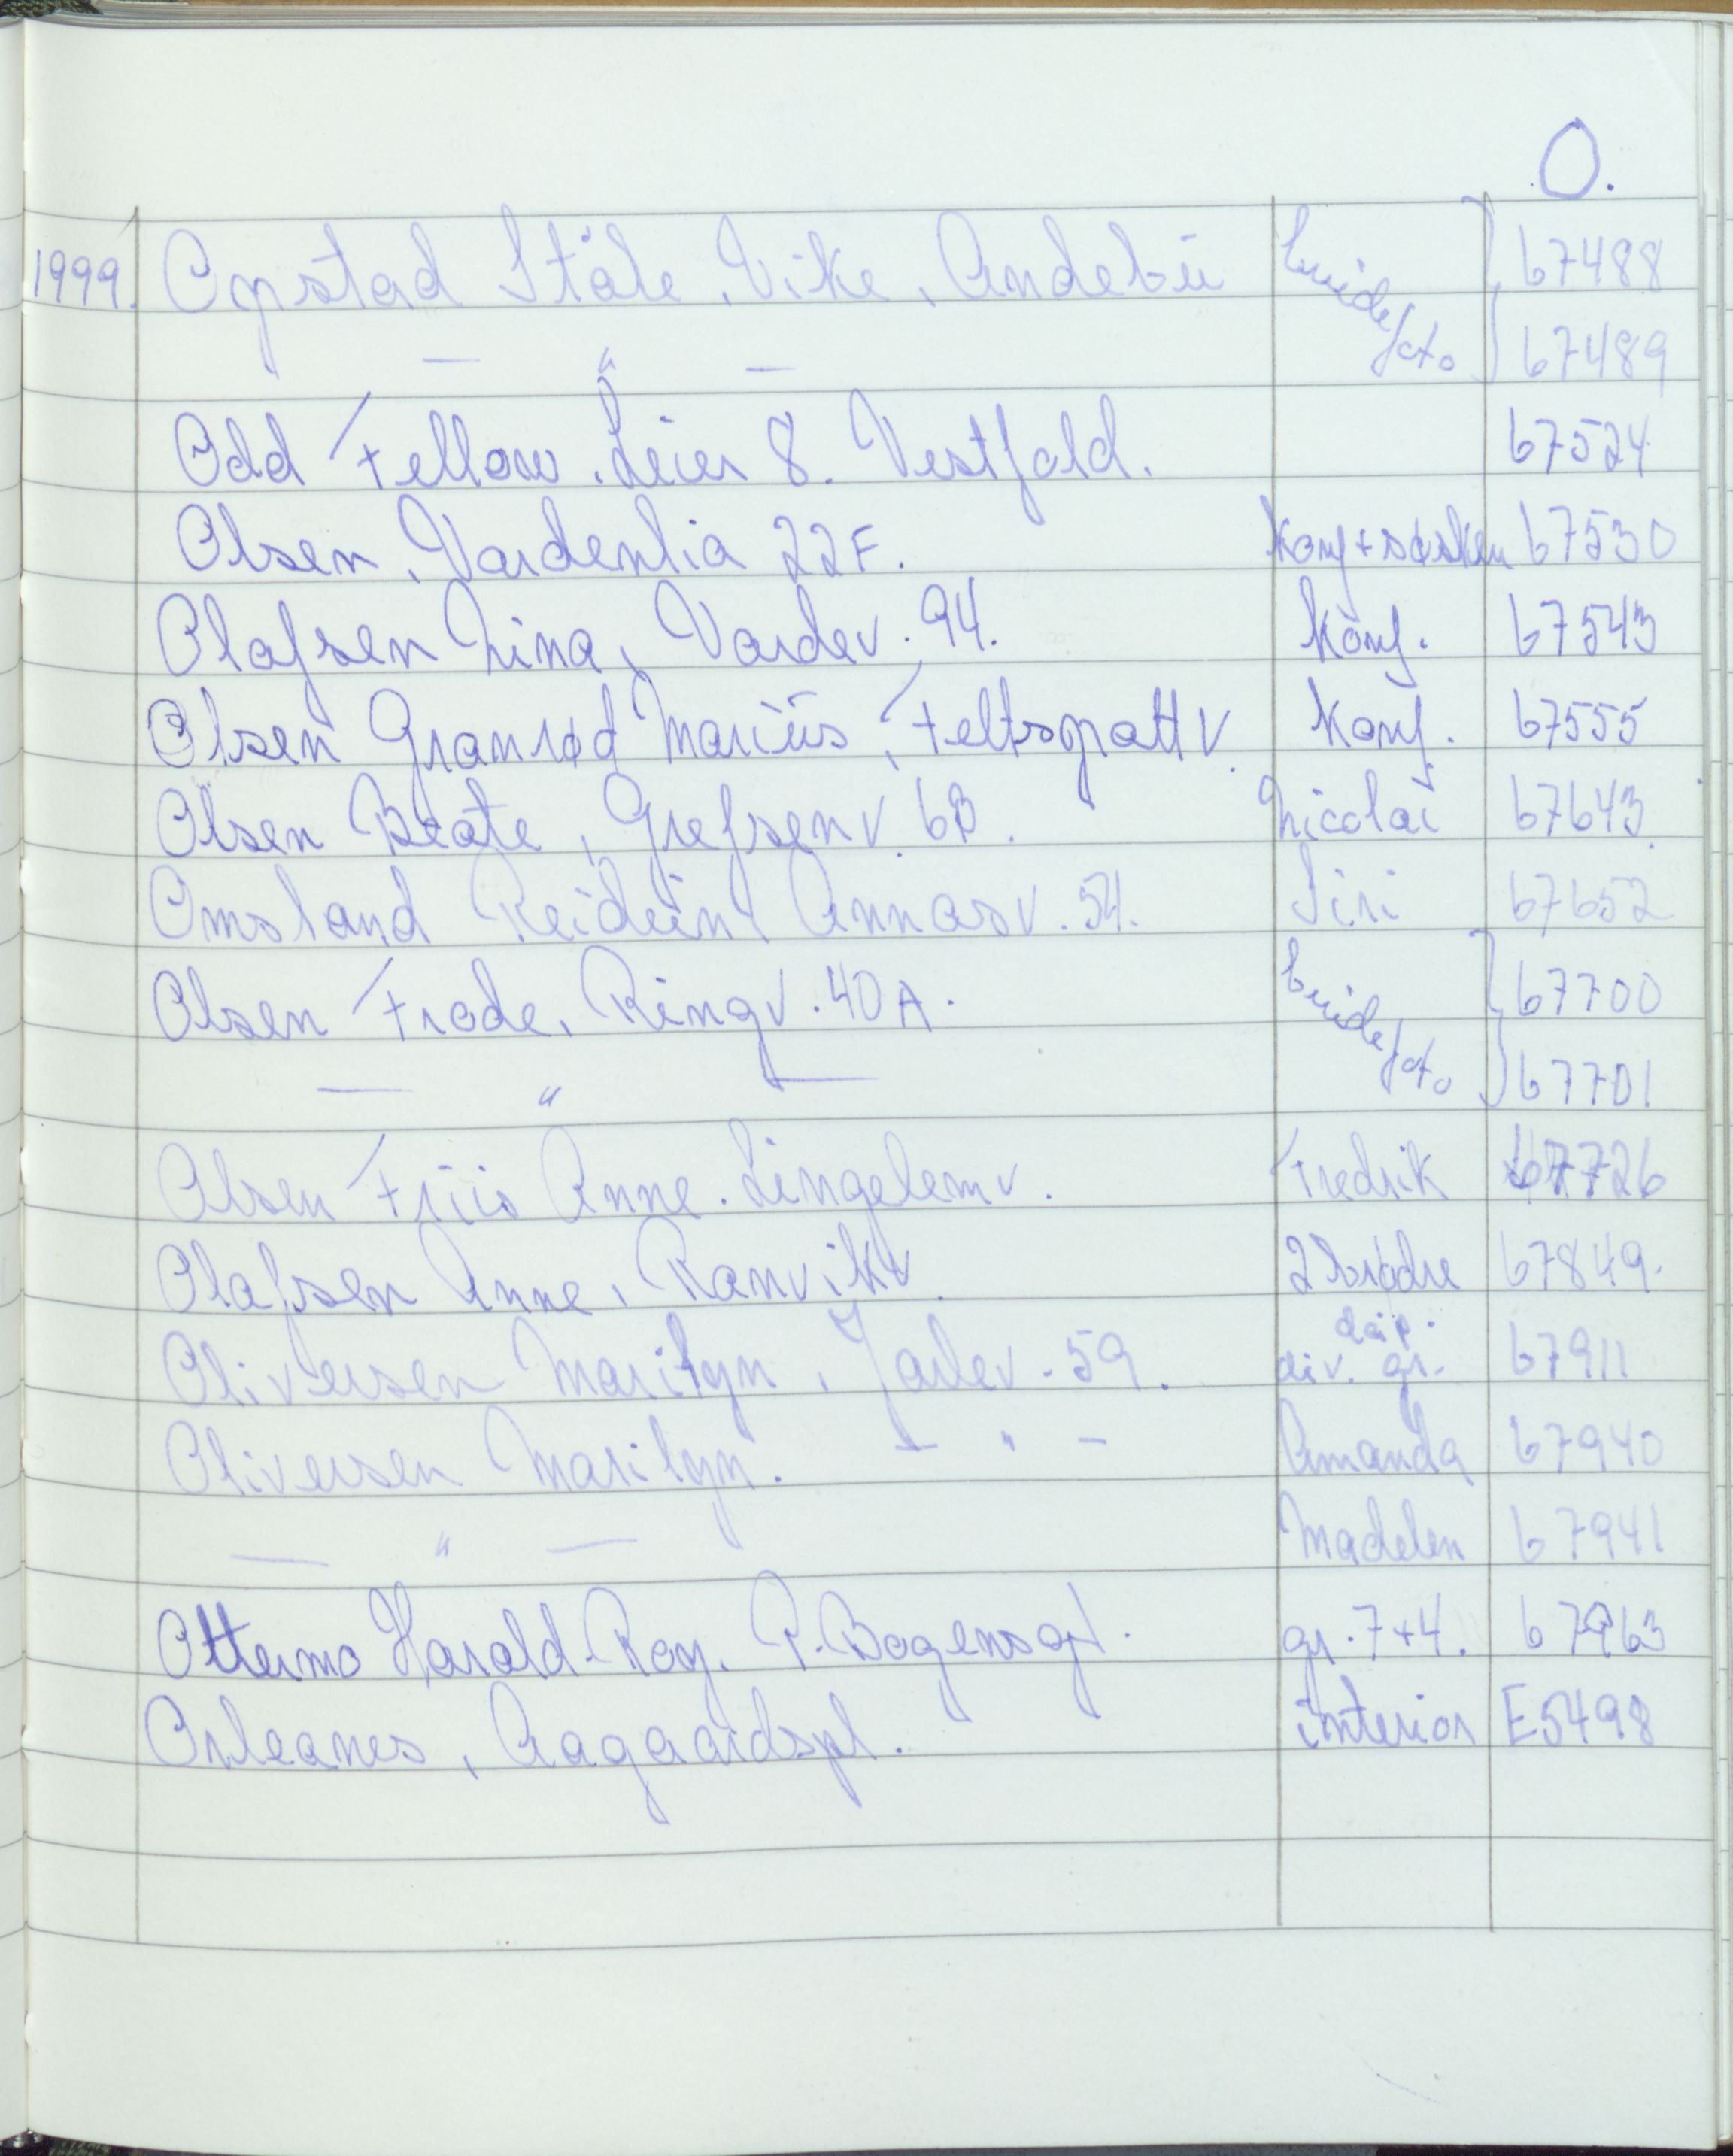 O.
1999. Opstad Ståle, Vike, Andebu brude/foto 67488
— " — 67489
Odd Fellow. Leier 8. Vestfold. 67524
Olsen, Vardenlia 22F. konf + søsken 67530
Olafsen Nina, Vardev. 94. konf. 67543
Olsen Gramrød Marius, Feltspattv. konf. 67555
Olsen Beate, Grefsenv. 6B. Nicolai 67643
Omsland Reidun Annasv. 54. Siri 67652
Olsen Frode, Ringv. 40A. brude/foto 67700
— " — 67701
Olsen Friis Anne. Lingelemv. Fredrik 67726
Olafsen Anne, Ranvikv. 2 brødre 67849.
Oliversen Marilyn, Jarlev. 59. dåp. div. gr. 67911
Oliversen Marilyn. — " — Amanda 67940
— " — Madelen 67941
Ottermo Harald Roy. P. Bogensgt. gr. 7+4. 67963
Orleanes, Aagaardspl. interiør E5498